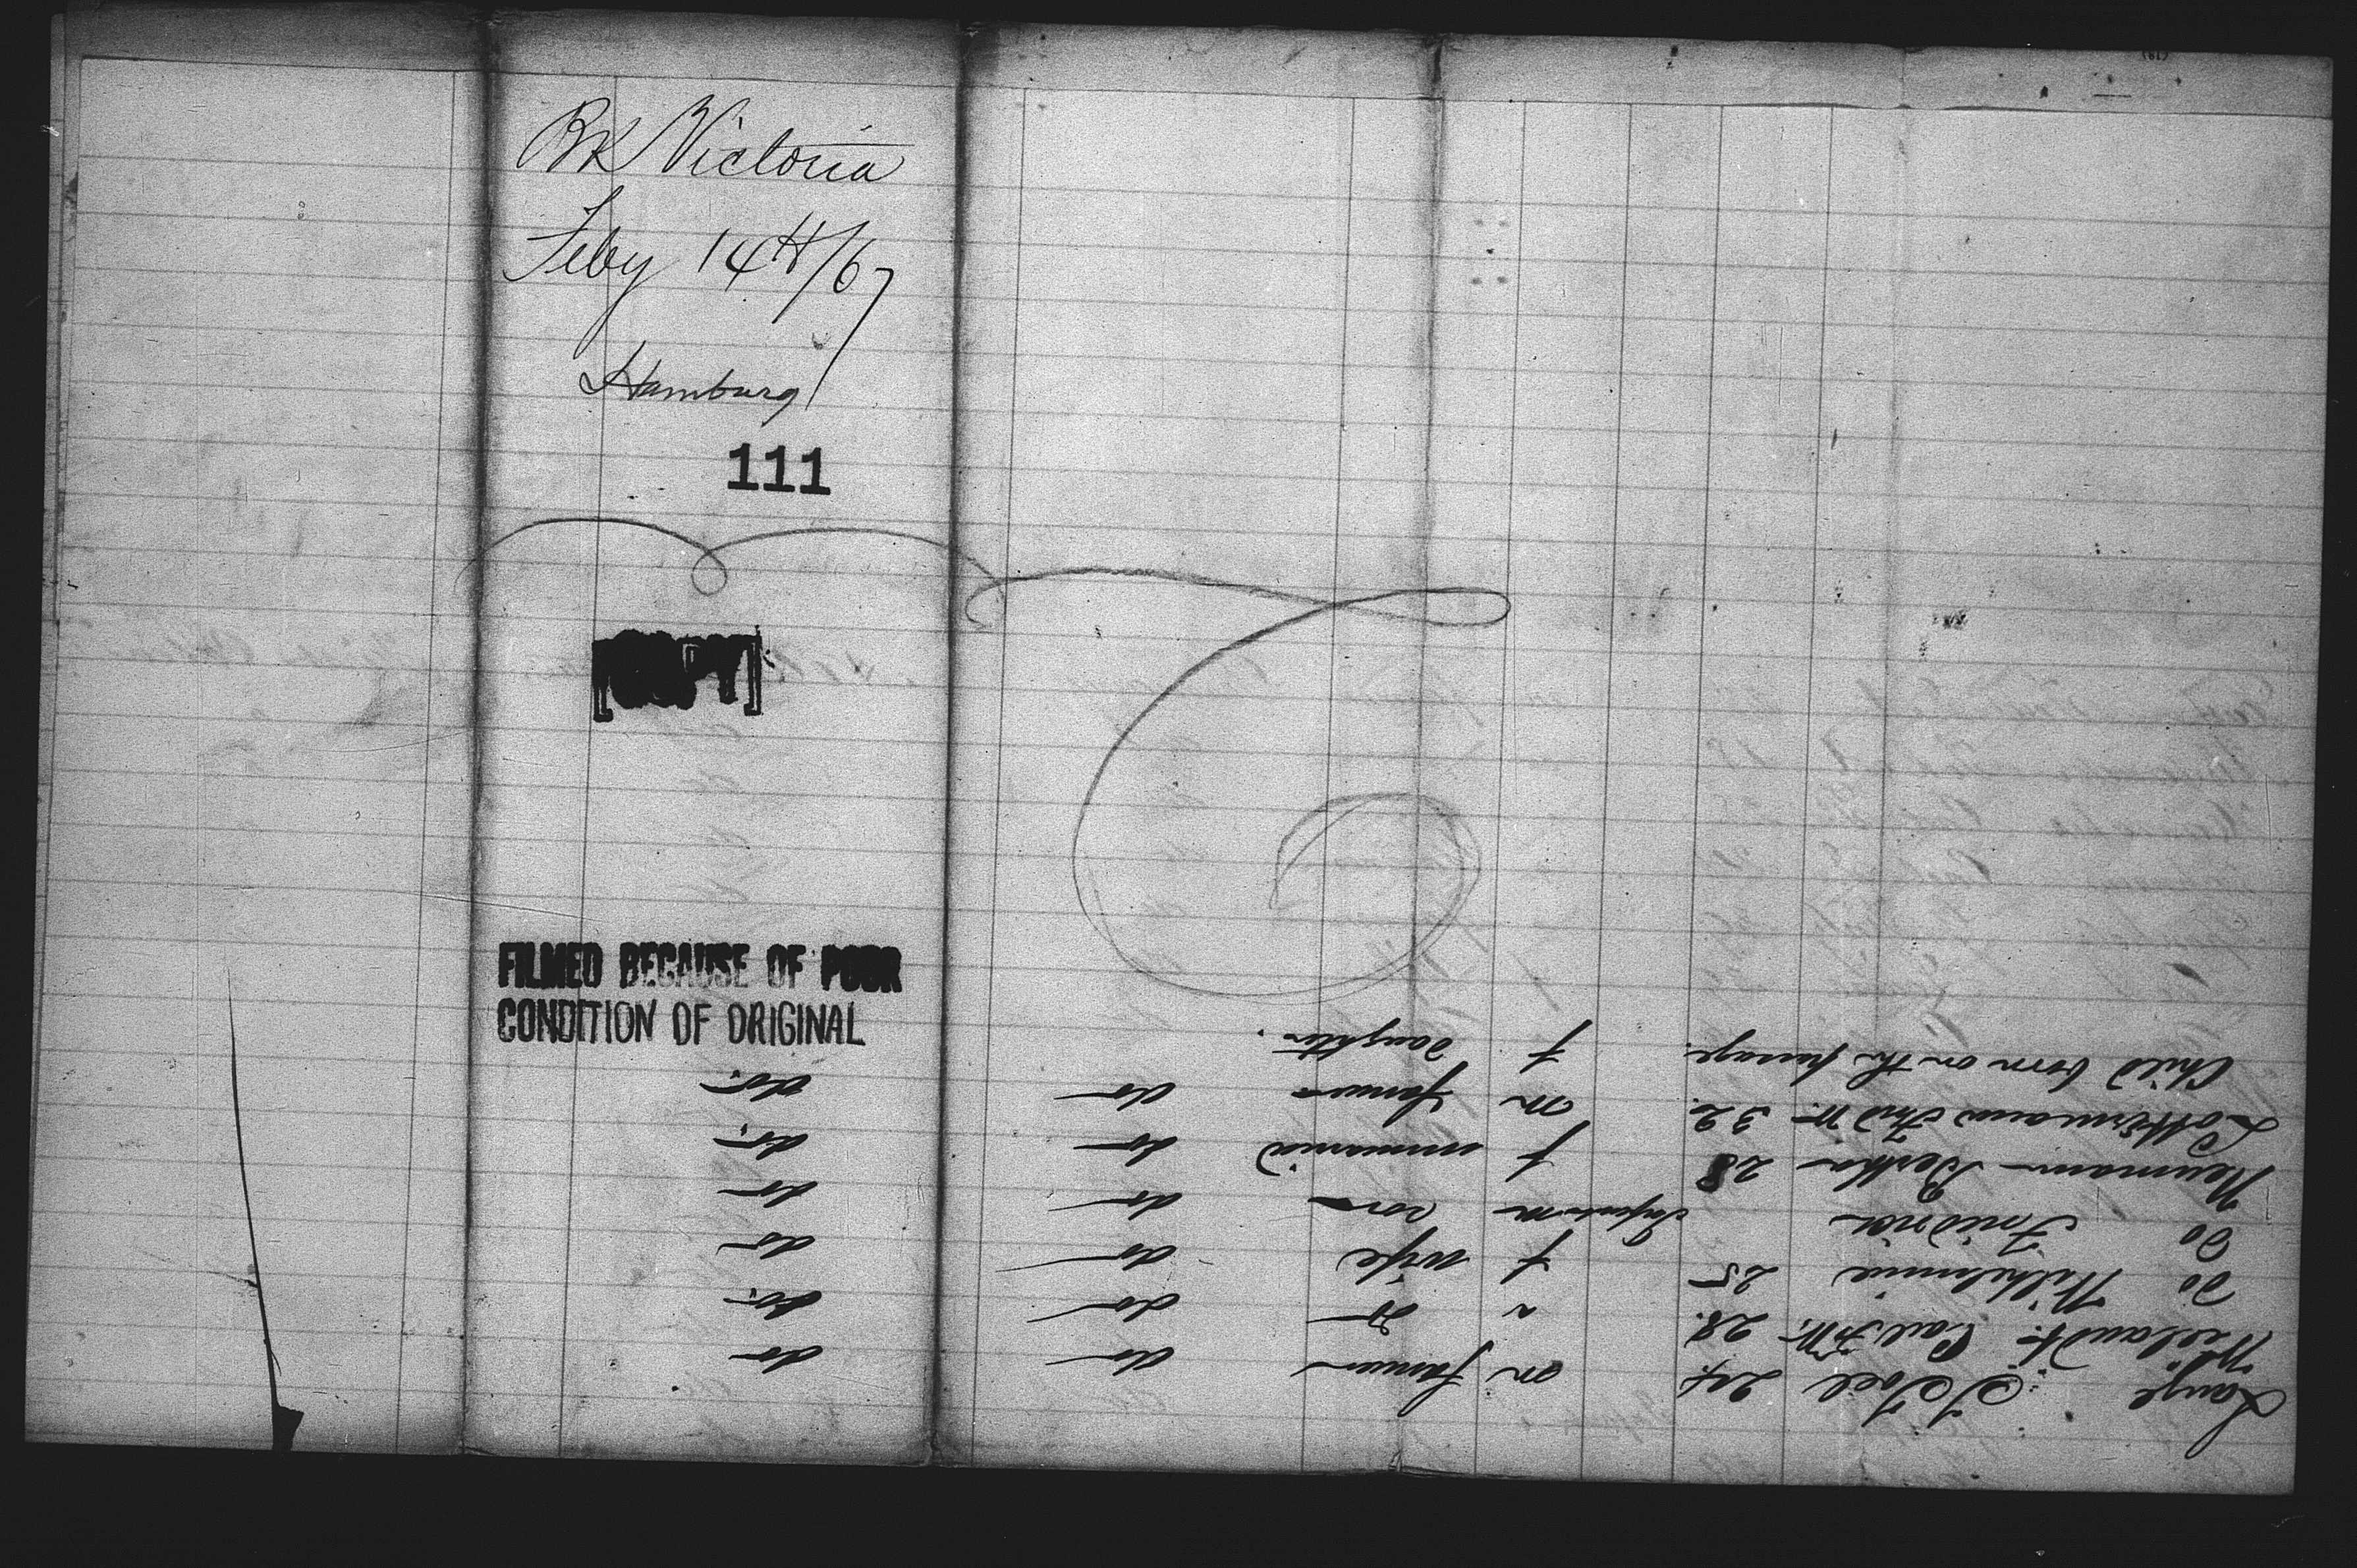 Bk Victoria
Feby 14th/67
Hamburg
111
FILMED BECAUSE OF POOR
CONDITION OF ORIGINAL
Lange 24 m farmer do do
Wielandt Carl 28. " do do do.
do Wilhelmine 25 f wife do do
do Friedrich Infant m son do do
Neumann Bertha 28 f unmarried do do.
Lottermann Fried W. 32. m farmer do do.
Child born on the passage. f daughter.